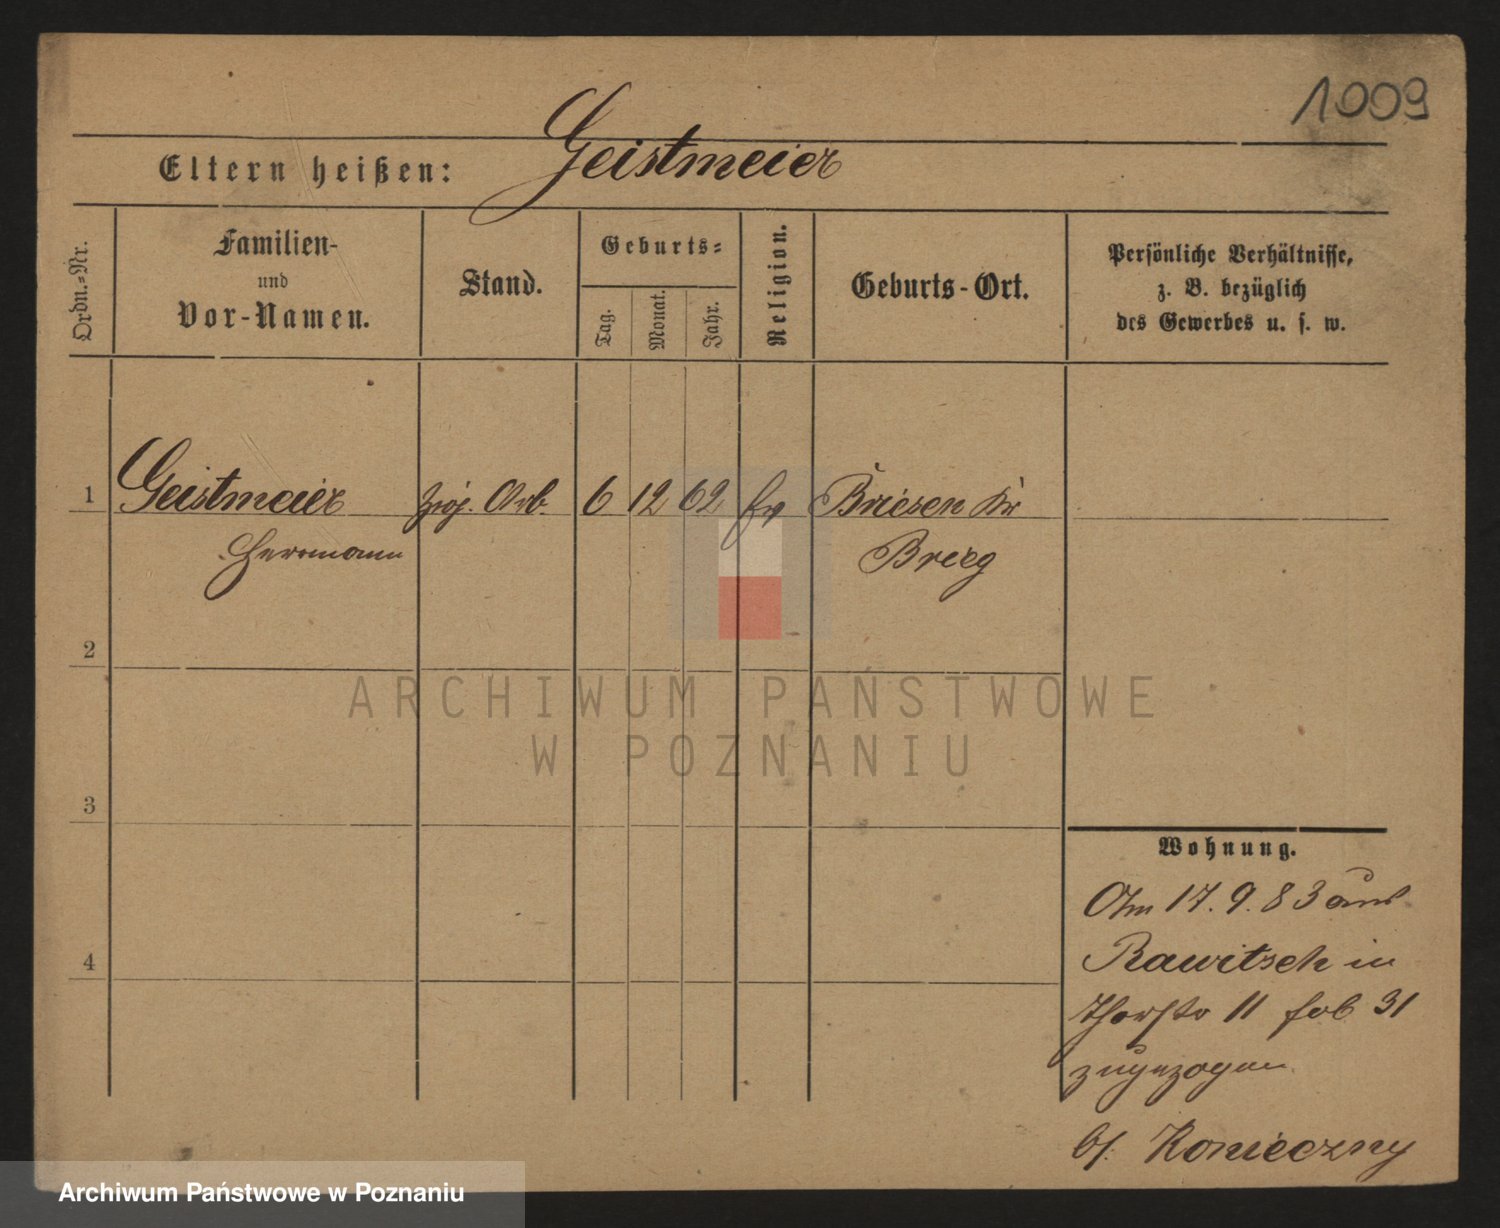 1009
Geistmeier
Eltern heißen:
Ordn.=Nr.
Familien-
und
Vor-Namen.
Stand.
Geburts=
Tag.
Monat.
Jahr.
Religion.
Geburts-Ort.
Persönliche Verhältnisse,
z. B. bezüglich
des Gewerbes u. s. w.
1 Geistmeier Arb. 6 12 62 Briesen Kr
Herrmann Brieg
2
3
4
Wohnung.
Am 17. 9. 83 aus
Rawitsch in
11 31
zugezogen
b/. Konieczny
ARCHIWUM PAŃSTWOWE
W POZNANIU
Archiwum Państwowe w Poznaniu